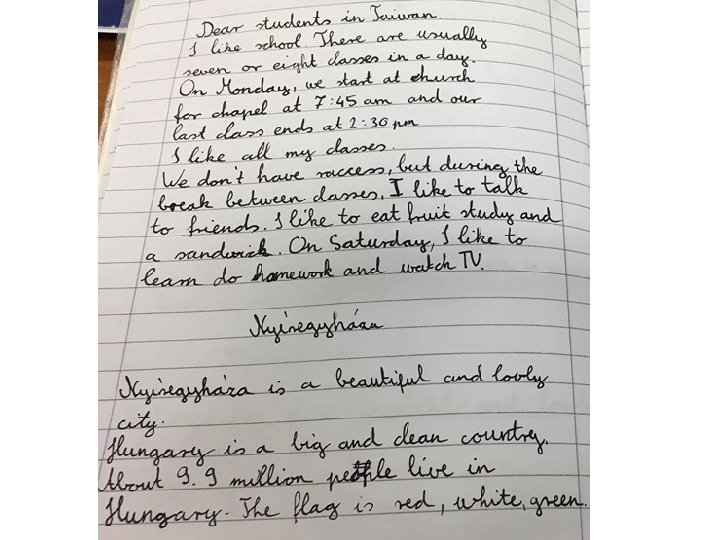 Dear students in Taiwan
I like school There are usually
seven or eight classes in a day.
On Monday, we start at church
for chapel at 7:45 am and our
last class ends at 2:30 pm
I like all my classes.
We don't have raccess, but during the
break between classes, I like to talk
to friends. I like to eat fruit study and
a sandwich. On Saturday, I like to
learn do homework and watch TV.
Nyíregyháza
Nyíregyháza is a beautiful and lovly
city.
Hungary is a big and clean country.
About 9.9 million people live in
Hungary. The flag is red, white, green.